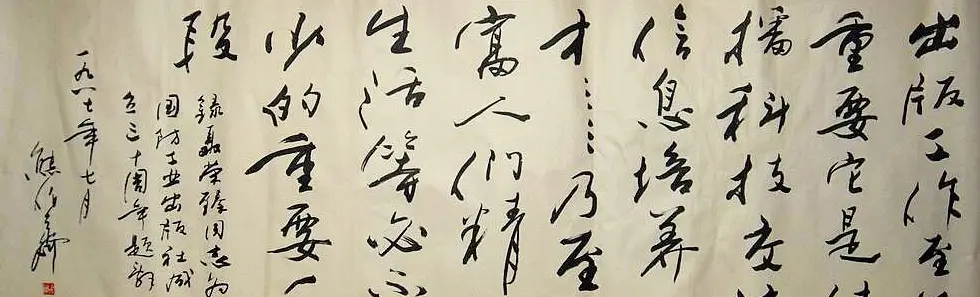 出版工作至
重要它是传
播科技交流
信息培养
才……乃至
富人们精
生活等必不
少的重要手
段
录聂荣臻同志为
国防工业出版社成
立三十周年题辞
一九八七年七月
熊